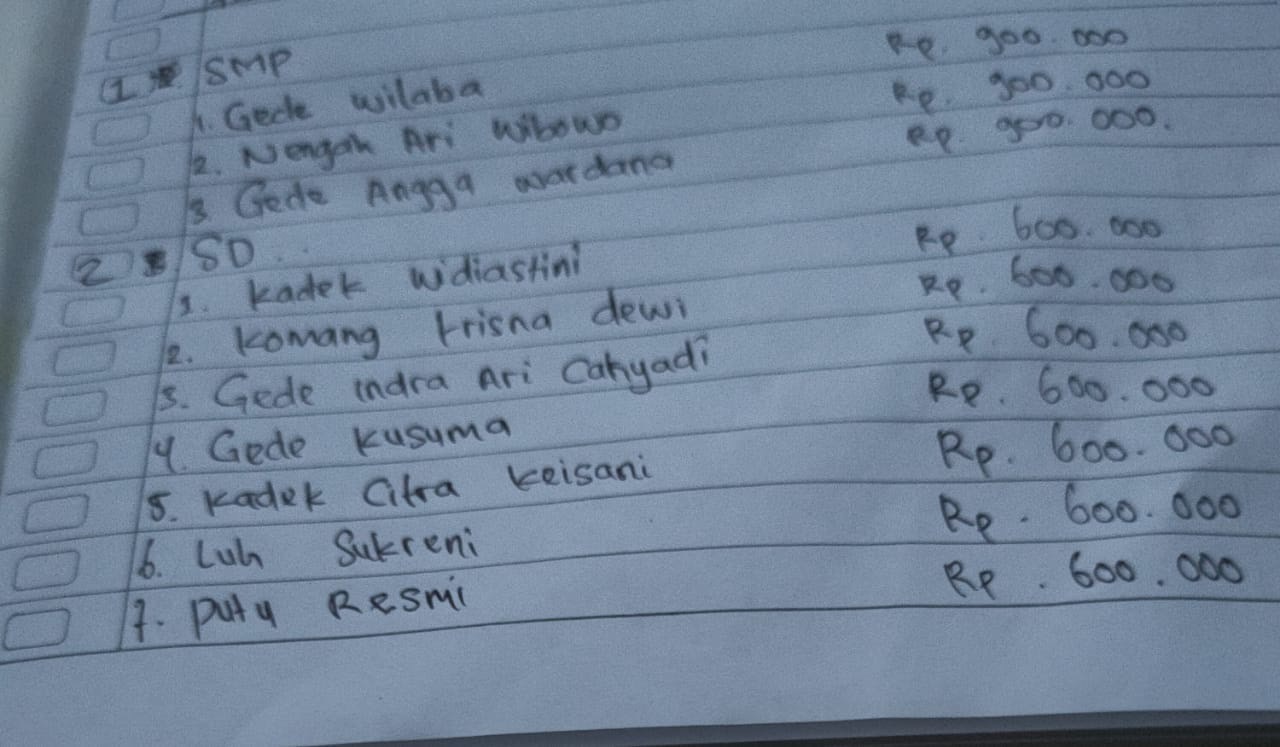 1 SMP
1. Gede wilaba Rp. 900.000
2. Nengah Ari wibowo Rp. 900.000
3 Gede Angga wardana Rp. 900.000.
2 SD
1. Kadek widiastini Rp. 600.000
2. Komang trisna dewi Rp. 600.000
3. Gede indra Ari Cahyadi Rp. 600.000
4. Gede Kusuma Rp. 600.000
5. Kadek Citra keisani Rp. 600.000
6. Luh Sukreni Rp. 600.000
7. Putu Resmi Rp. 600.000